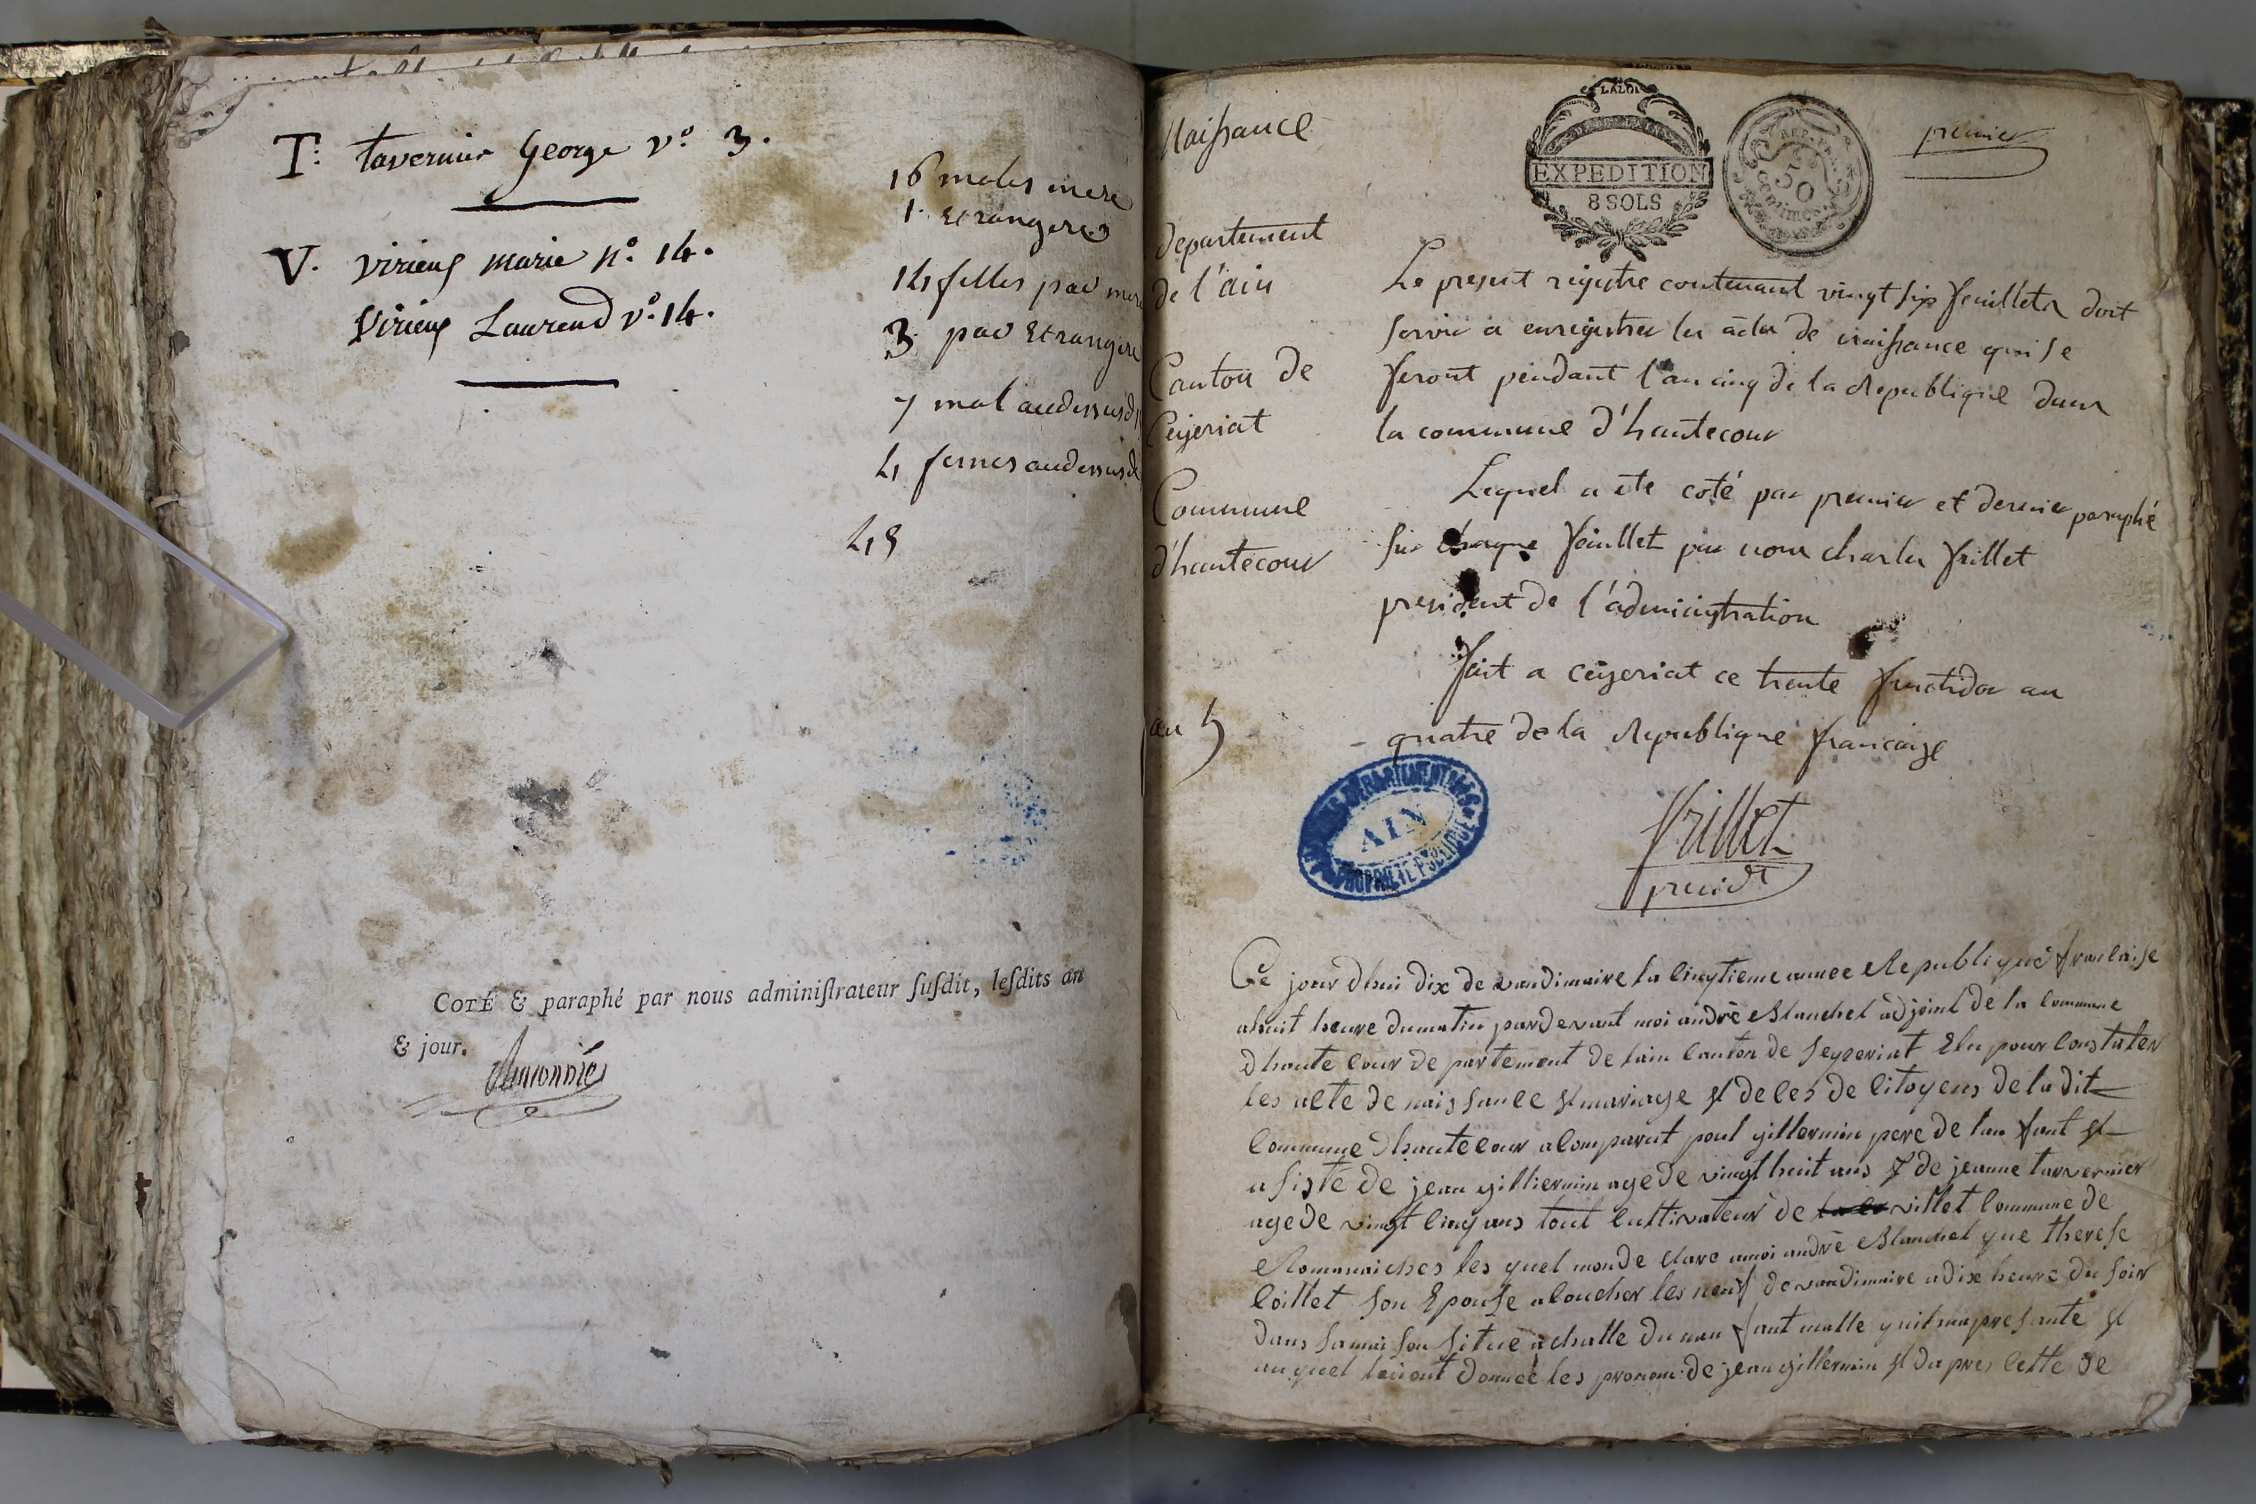 T: tavernier George v.° 3.
V. virieux marie n.° 14.
Virieux Laurend v.° 14.
16 males mere
1. Etrangere
14 filles par mere
3. par Etrangere
7 mal audessus d
4 femes audessus d
45
COTÉ & paraphé par nous adminiſtrateur ſuſdit, leſdits an
& jour.
Naissance
LA LOI
EXPEDITION
8 SOLS
50
centimes
premier
departement
de l'ain
Canton de
Ceyzeriat
Commune
d'hautecour
an 5
Le present registre contenant vingt six feuillets doit
servir a enregistrer les actes de naissance qui se
feront pendant l'an cinq de la Republique dans
la commune d'hautecour
Lequel a ete coté par premier et dernier paraphé
sur chaque feuillet par nous charles frillet
president de l'administration
fait a ceyzeriat ce trente fructidor an
quatre de la Republique francaise
frillet
presidt
ARCHIVES DEPARTEMENTALES
AIN
PROPRIETE PUBLIQUE
Ce jour dhui dix de vandimaire la cinqtieme annee Republique francaise
ahuit heure dumatin pardevant moi andré Blanchet adjoint de la commune
dhaute cour departement de lain canton de seyzeriat Elu pour constater
les acte de naissance et mariage et deces de citoyens de la dit
commune dhautecour a comparut poul gillermin pere de lan fant et
asisté de jean gilliermin age de vingt huit ans & de jeanne tarvernier
age de vingt cinq ans tout cultivateur de villet commune de
Romanaiches les quel mon de clare amoi andré Blanchet que therese
loillet son Epouse a coucher les neuf de vandimaire a dix heure du soir
dans samaison situé a challe du nan fant malle quil ma presanté et
au quel lui ont donnee les pronom de jean gillermin et da pres cette de